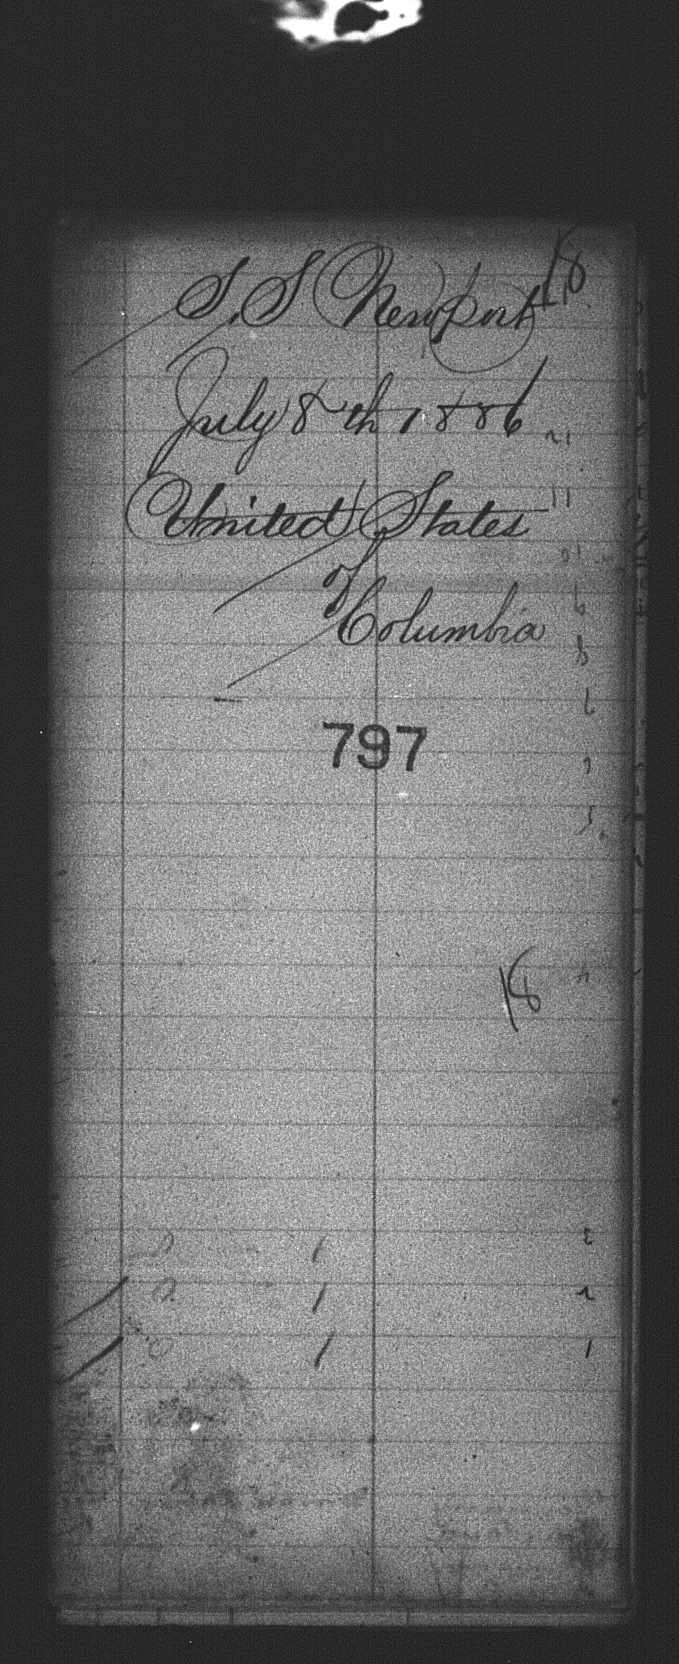 18
S.S. Newport
July 8th 1886
United States
of
Columbia
797
18